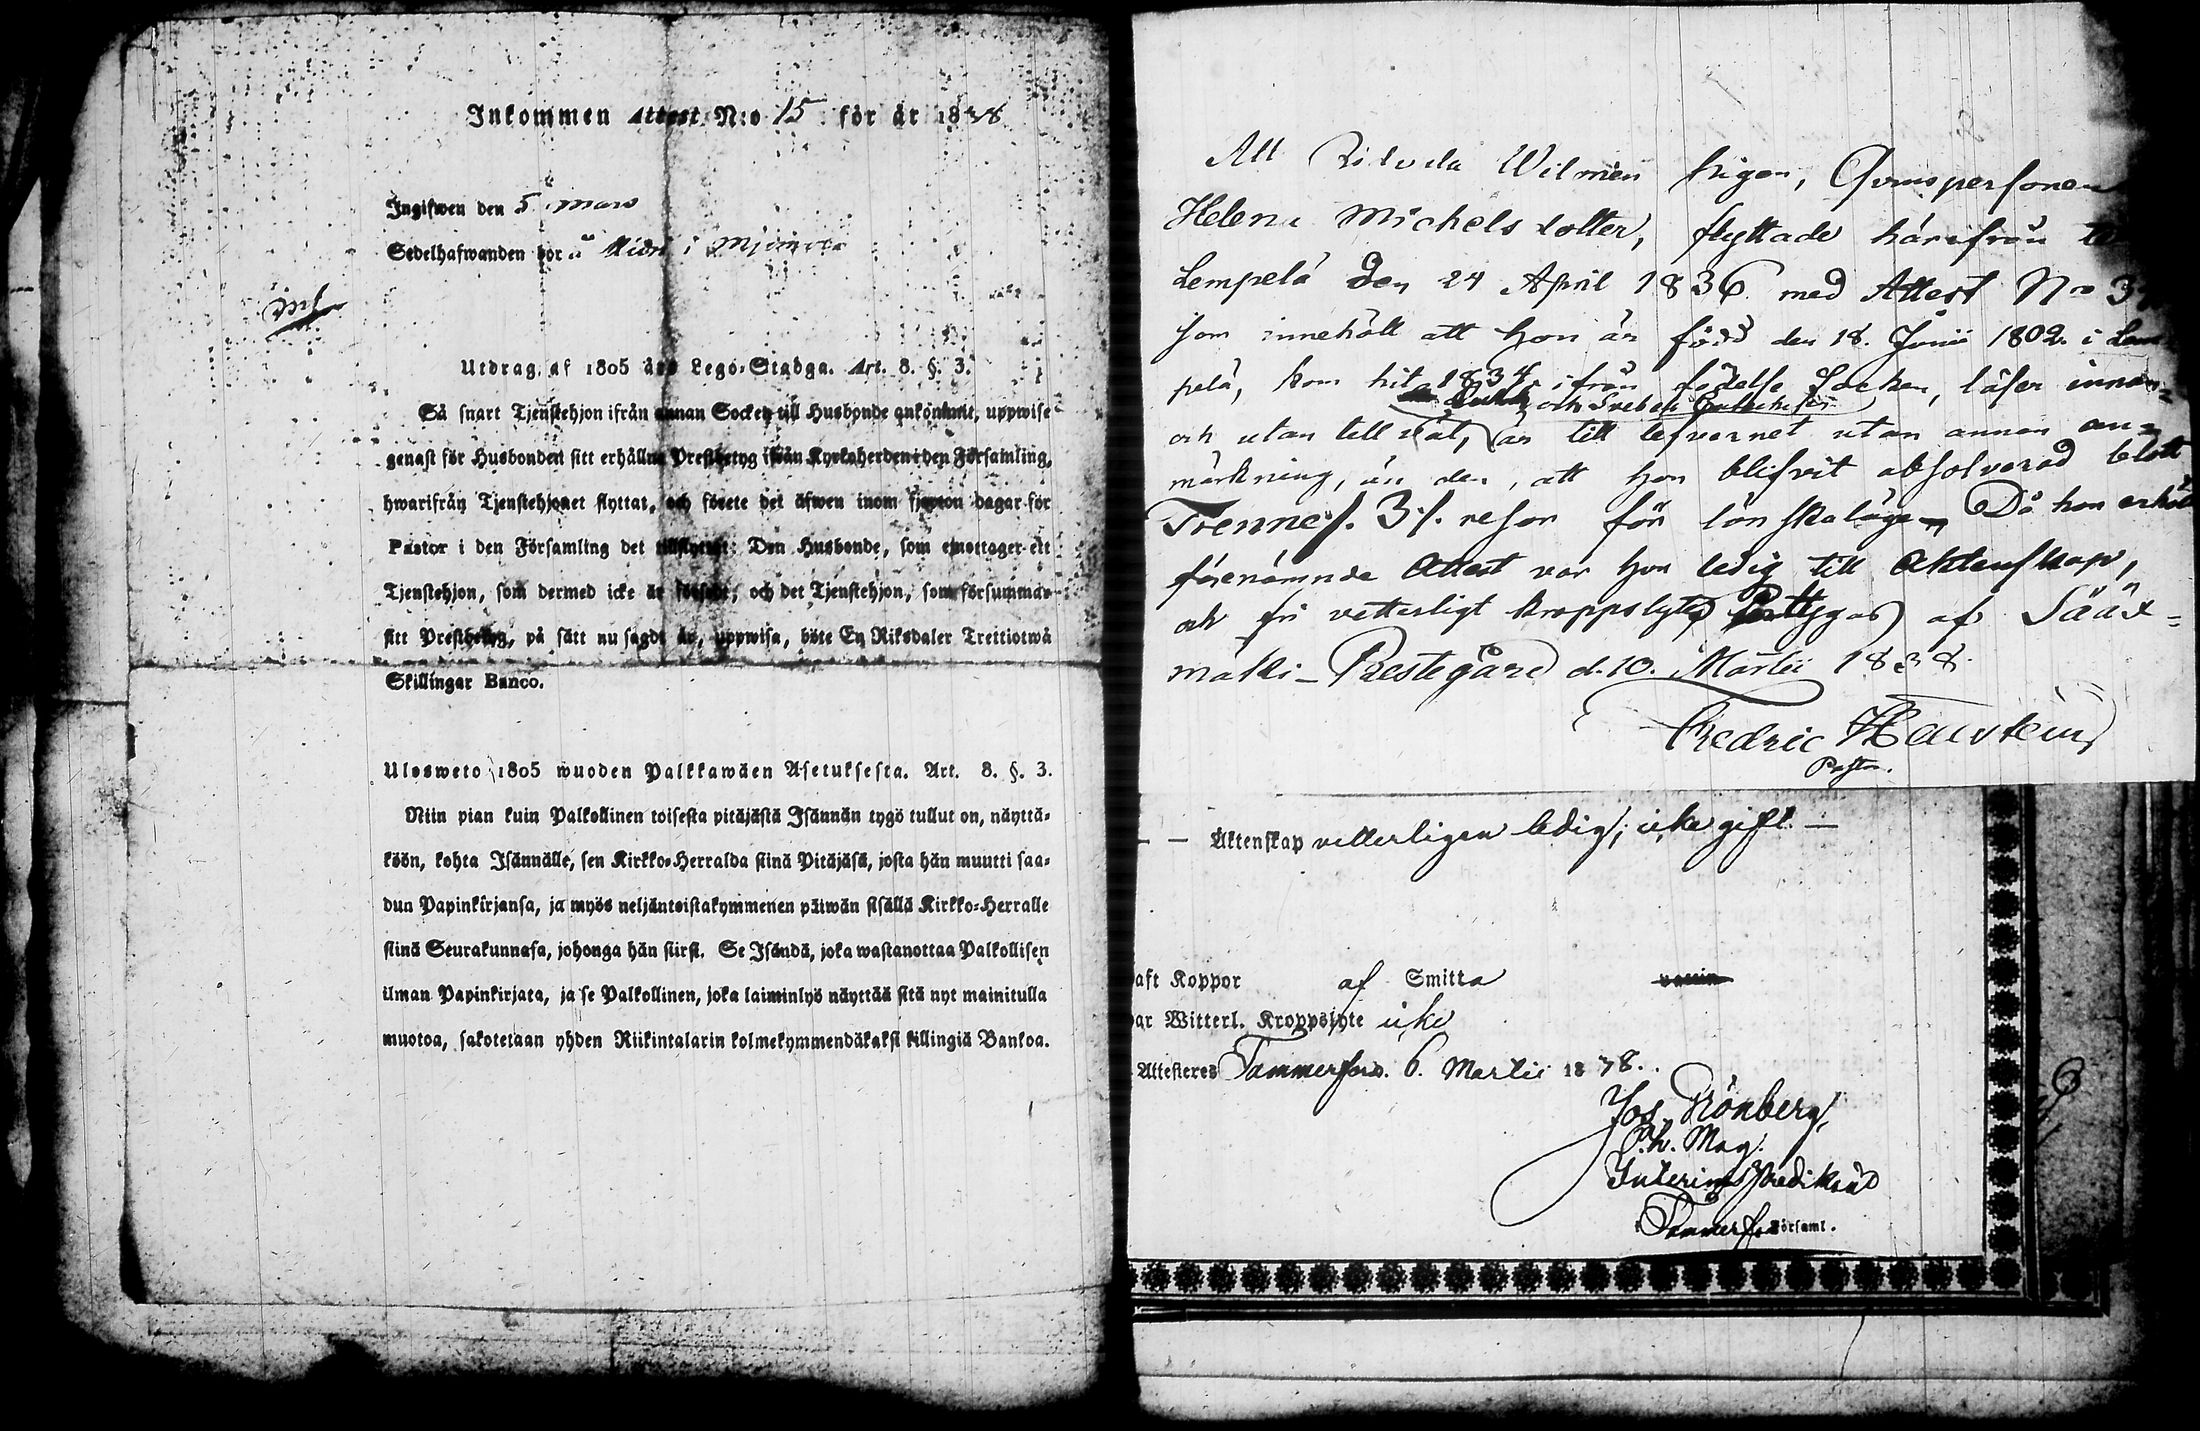 Inkommen Attest N:o 15 för år 1838
Ingifwen den 5 mars
Sedelhafwanden bor å i
Utdrag af 1805 års Lego-Stadga. Art. 8. §. 3.
Så snart Tjenstehjon ifrån annan Socken till Husbonde ankommit, uppwise
genast för Husbonden sitt erhållna Prestbetyg ifrån Kyrkoherden i den Församling,
hwarifrån Tjenstehjonet flyttat, och förete det äfwen inom fjorton dagar för
Pastor i den Församling det tillflyttat: Den Husbonde, som emottager ett
Tjenstehjon, som dermed icke är försedt, och det Tjenstehjon, som försummar
sitt Prestbetyg, på sätt nu sagdt är, uppwisa, böte En Riksdaler Trettiotwå
Skillingar Banco.
Ulosweto 1805 wuoden Palkkawäen Asetuksesta. Art. 8. §. 3.
Niin pian kuin Palkollinen toisesta pitäjästä Isännän tygö tullut on, näyttä-
köön, kohta Isännälle, sen Kirkko-Herralda siinä Pitäjäsä, josta hän muutti saa-
dun Papinkirjansa, ja myös neljäntoistakymmenen päiwän sisällä Kirkko-Herralle
siinä Seurakunnasa, johonga hän siirsi. Se Isändä, joka wastanottaa Palkollisen
ilman Papinkirjata, ja se Palkollinen, joka laiminlyö näyttää sitä nyt mainitulla
muotoa, sakotetaan yhden Riikintalarin kolmekymmendäkaksi killingiä Bankoa.
Att Ritvala Wilmen Pigan, Qvinspersonen
Helena Michelsdotter, flyttade härifrån
Lempelä den 24 April 1836 med Attest No
som innehöll att hon är född den 18. Junii 1802 i Lem
pelä, kom hit 1834 ifrån födelse Socken, läser innan-
och Svebel.
och utan till nöat, är till lefvernet utan annan an-
märkning, än den, att hon blifvit absolverad blott
Trenne /. 3 /. resor för lönskaläge. Då hon erhöll
förenämnde Attest var hon ledig till Äktenskap,
och fri vetterligt kroppslyte Bettygas af Sääx-
mäki Prestegård d. 10. Martii 1838.
Fredric
Pastor.
— — Äktenskap vetterligen ledig, icke gift —
aft Koppor af Smitta vaccin
ar Witterl. Kroppslyte icke
Attesteres Tammerfors. 6. Martii 1838.
Jos. Grönberg,
Ph. Mag.
Interims Predikant
i Tammerfors Församl.